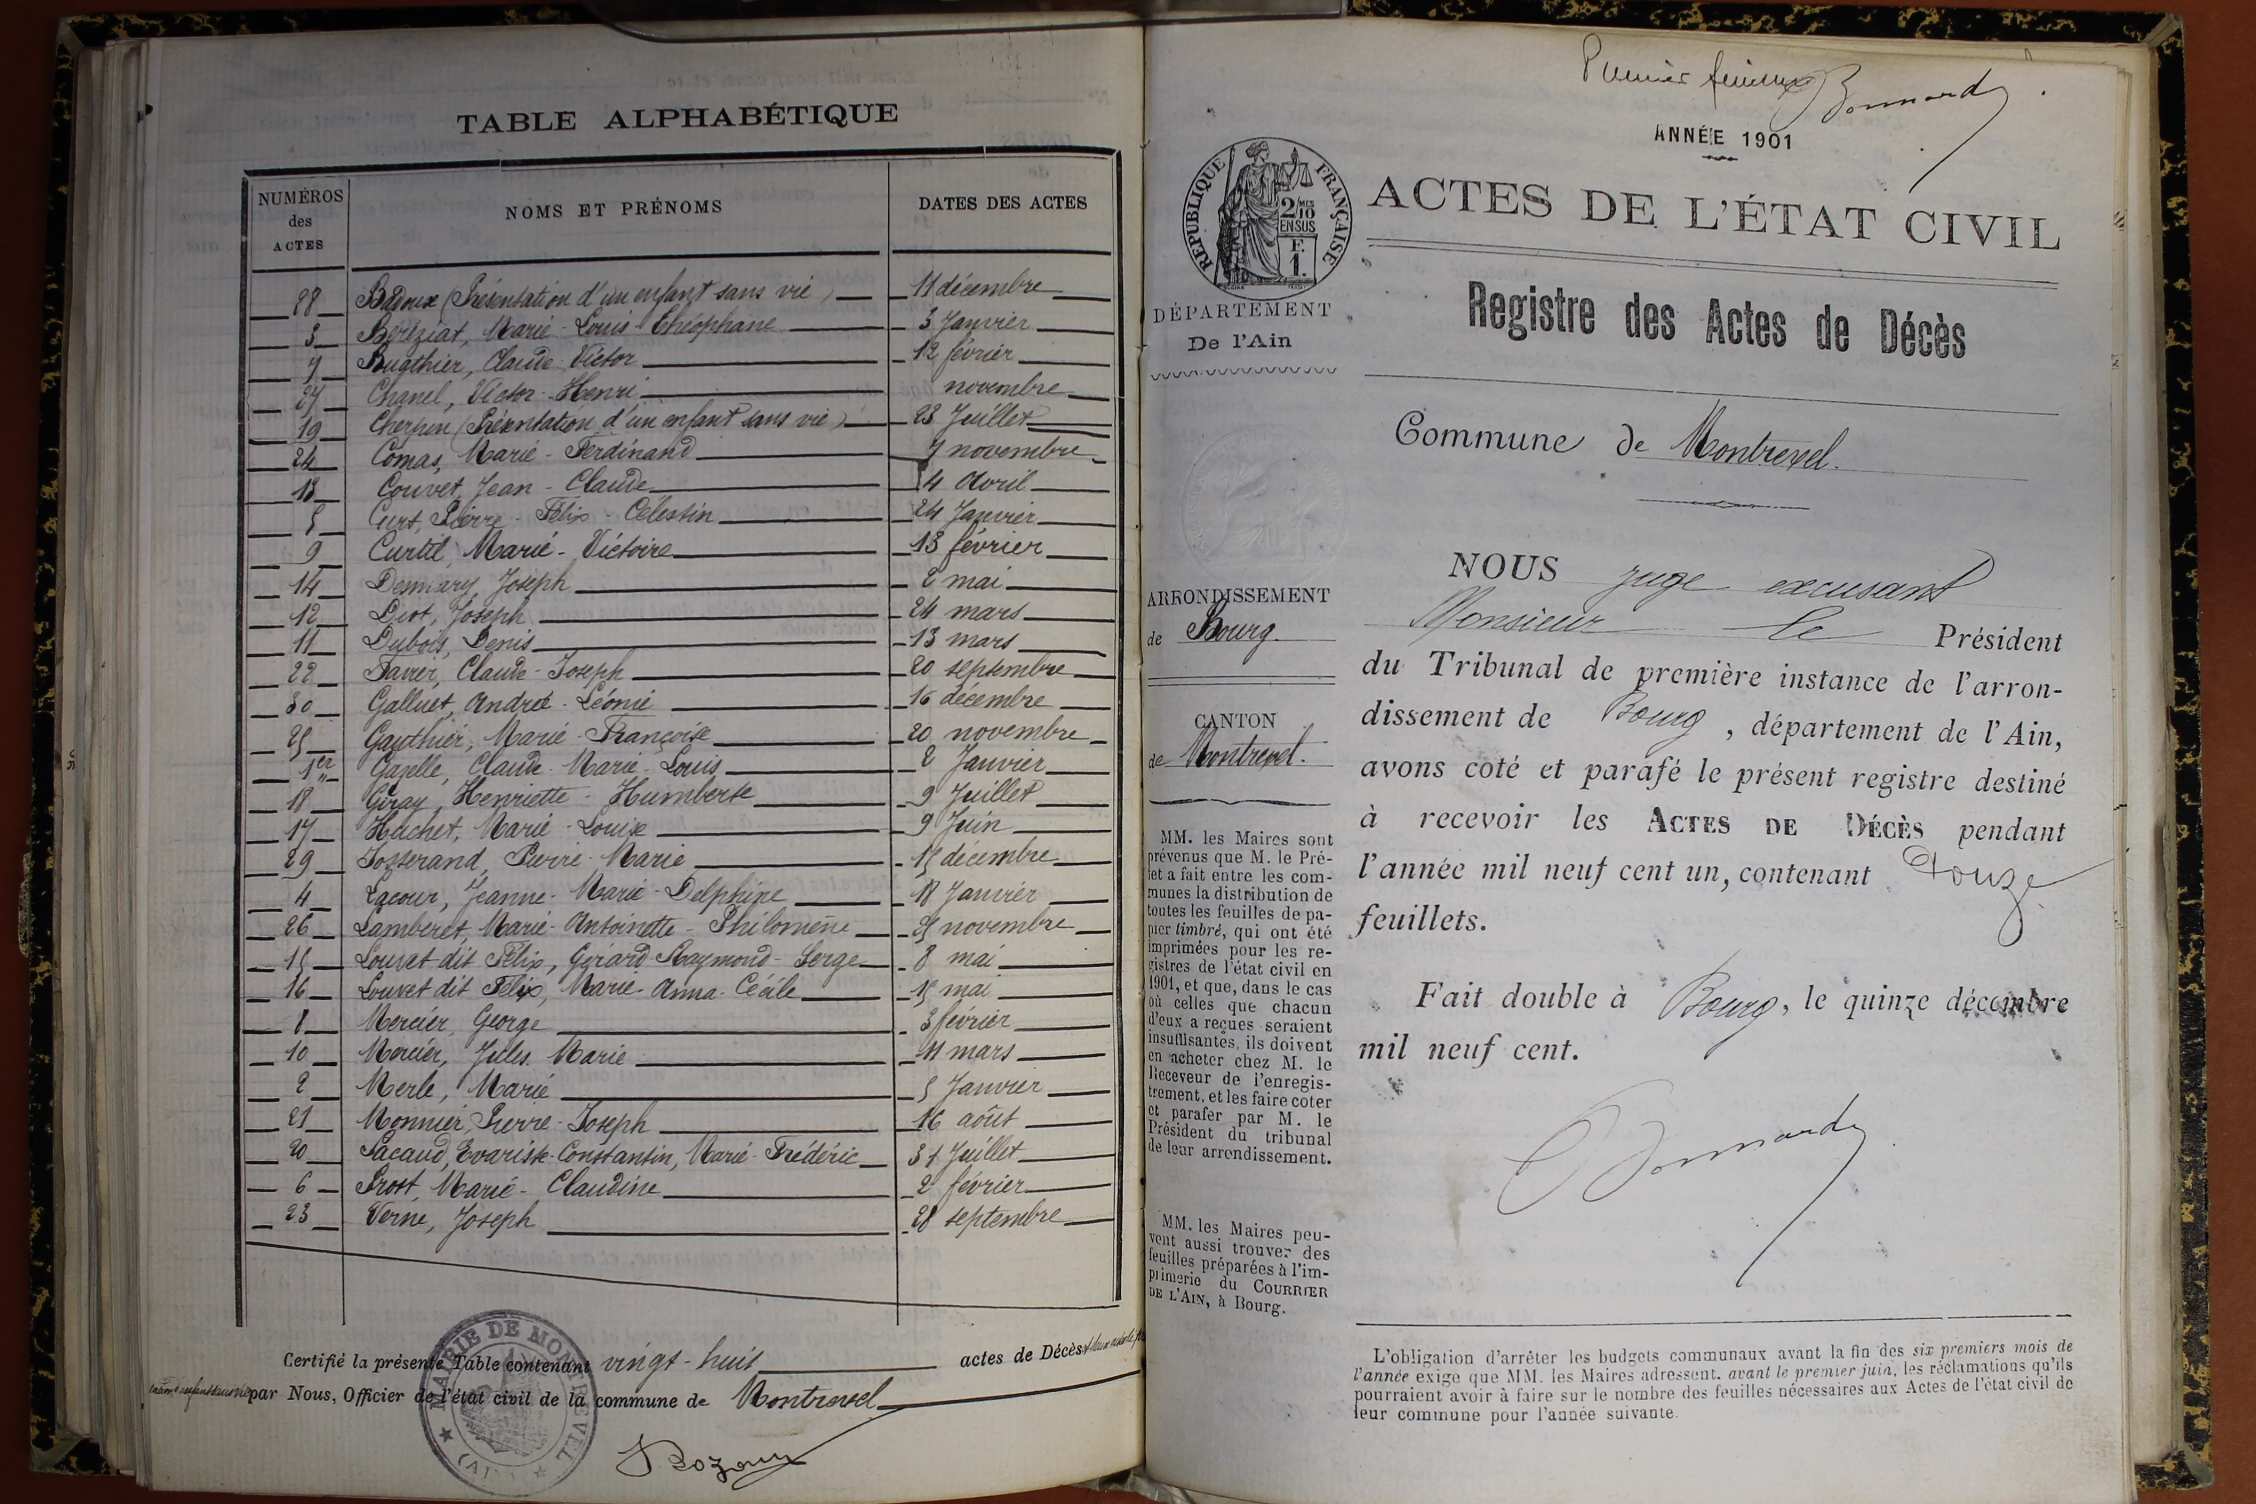 TABLE ALPHABÉTIQUE
NUMÉROS des ACTES NOMS ET PRÉNOMS DATES DES ACTES
28 Badoux (Présentation d'un enfant sans vie) 11 décembre
3 Béréziat, Marie-Louis-Théophane 3 Janvier
7 Bugthier, Claude-Victor 12 février
27 Chanel, Victor-Henri novembre
19 Cherpin (Présentation d'un enfant sans vie) 23 Juillet
24 Comas, Marie-Ferdinand 7 novembre
13 Couvet, Jean-Claude 4 Avril
5 Curt, Pierre-Félix-Célestin 24 Janvier
9 Curtil, Marie-Victoire 13 février
14 Joseph 2 mai
12 Diot, Joseph 24 mars
11 Dubois, Denis 13 mars
22 Favier, Claude-Joseph 20 septembre
30 Galluet, Andrée-Léonie 16 décembre
25 Gauthier, Marie-Françoise 20 novembre
1er Gazelle, Claude-Marie-Louis 2 Janvier
18 Giray, Henriette-Humberte 9 Juillet
17 Huchet, Marie-Louise 9 Juin
29 Josserand, Pierre-Marie 15 décembre
4 Lacour, Jeanne-Marie-Delphine 18 Janvier
26 Lamberet, Marie-Antoinette-Philomène 25 novembre
15 Louvet dit Félix, Gérard-Raymond-Serge 8 mai
16 Louvet dit Félix, Marie-Anna-Cécile 15 mai
8 Mercier, George 3 février
10 Mercier, Jules-Marie 11 mars
2 Merle, Marie 5 Janvier
21 Monnier, Pierre-Joseph 16 août
20 Pacaud, Evariste-Constantin, Marie-Frédéric 31 Juillet
6 Prost, Marie-Claudine 2 février
23 Verne, Joseph 28 septembre
Certifié la présente Table contenant vingt-huit actes de Décès
par Nous, Officier de l'état civil de la commune de Montrevel
MAIRIE DE MONTREVEL (AIN)
Premier feuillet Bonnardy
ANNÉE 1901
RÉPUBLIQUE FRANÇAISE
2/10 MES
EN SUS
F.
1.
ACTES DE L'ÉTAT CIVIL
Registre des Actes de Décès
Commune de Montrevel.
DÉPARTEMENT
De l'Ain
ARRONDISSEMENT
de Bourg.
CANTON
de Montrevel.
MM. les Maires sont
prévenus que M. le Pré-
fet a fait entre les com-
munes la distribution de
toutes les feuilles de pa-
pier timbré, qui ont été
imprimées pour les re-
gistres de l'état civil en
1901, et que, dans le cas
où celles que chacun
d'eux a reçues seraient
insuffisantes, ils doivent
en acheter chez M. le
Receveur de l'enregis-
trement, et les faire coter
et parafer par M. le
Président du tribunal
de leur arrondissement.
MM. les Maires peu-
vent aussi trouver des
feuilles préparées à l'im-
primerie du COURRIER
DE L'AIN, à Bourg.
NOUS juge excusant
Monsieur le Président
du Tribunal de première instance de l'arron-
dissement de Bourg, département de l'Ain,
avons coté et parafé le présent registre destiné
à recevoir les ACTES DE DÉCÈS pendant
l'année mil neuf cent un, contenant Douze
feuillets.
Fait double à Bourg, le quinze décembre
mil neuf cent.
Bonnardy
L'obligation d'arrêter les budgets communaux avant la fin des six premiers mois de
l'année exige que MM. les Maires adressent, avant le premier juin, les réclamations qu'ils
pourraient avoir à faire sur le nombre des feuilles nécessaires aux Actes de l'état civil de
leur commune pour l'année suivante.